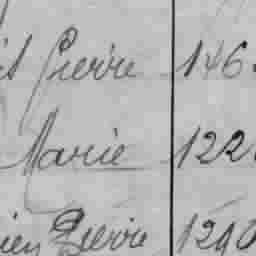 Pierre 146
Marie 122
Pierre 1290